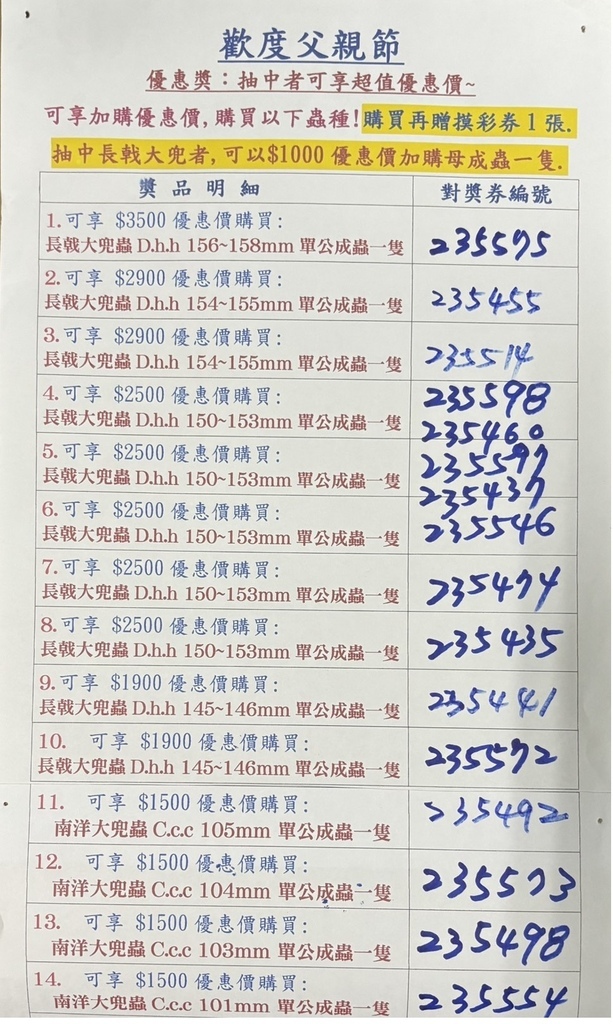 歡度父親節
優惠獎：抽中者可享超值優惠價~
可享加購優惠價,購買以下蟲種!購買再贈摸彩券1張.
抽中長戟大兜者,可以$1000優惠價加購母成蟲一隻.
獎品明細 對獎券編號
1.可享 $3500優惠價購買:
長戟大兜蟲D.h.h 156~158mm 單公成蟲一隻 235575
2.可享 $2900優惠價購買:
長戟大兜蟲D.h.h 154~155mm 單公成蟲一隻 235455
3.可享 $2900優惠價購買:
長戟大兜蟲D.h.h 154~155mm 單公成蟲一隻 235514
4.可享 $2500優惠價購買: 235598
長戟大兜蟲D.h.h 150~153mm 單公成蟲一隻 235460
5.可享 $2500優惠價購買: 235597
長戟大兜蟲D.h.h 150~153mm 單公成蟲一隻 235437
6.可享 $2500優惠價購買: 235546
長戟大兜蟲D.h.h 150~153mm 單公成蟲一隻
7.可享 $2500優惠價購買:
長戟大兜蟲D.h.h 150~153mm 單公成蟲一隻 235474
8.可享 $2500優惠價購買:
長戟大兜蟲D.h.h 150~153mm 單公成蟲一隻 235435
9.可享 $1900優惠價購買:
長戟大兜蟲D.h.h 145~146mm 單公成蟲一隻 235441
10. 可享 $1900優惠價購買:
長戟大兜蟲D.h.h 145~146mm 單公成蟲一隻 235572
11. 可享 $1500優惠價購買:
南洋大兜蟲C.c.c 105mm 單公成蟲一隻 235492
12. 可享 $1500優惠價購買:
南洋大兜蟲C.c.c 104mm 單公成蟲一隻 235573
13. 可享 $1500優惠價購買:
南洋大兜蟲C.c.c 103mm 單公成蟲一隻 235498
14. 可享 $1500優惠價購買:
南洋大兜蟲C.c.c 101mm 單公成蟲一隻 235554